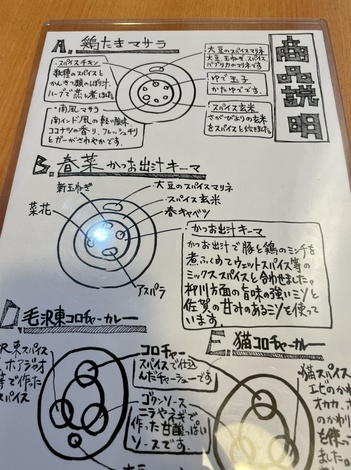 商品説明
A. 鶏たまマサラ
・スパイスチキン
数種のスパイスと
ハーブで蒸し煮
・南風マサラ
南インド風の軽い酸味
ココナツの香り、フレッシュチリと
ビガーがさわやかです。
大豆のスパイスマリネ
大豆、玉ねぎ、スパイス
パプリカのマリネです。
ゆで玉子
かたゆでです。
スパイス玄米
さがびよりの玄米
をスパイスと
B. 春菜 かつお出汁キーマ
新玉ねぎ
菜花
アスパラ
大豆のスパイスマリネ
スパイス玄米
春キャベツ
・かつお出汁キーマ
かつお出汁で豚と鶏のミンチを
煮ふくめてウェットスパイス等の
ミックススパイスと合わせました。
柳川方面の旨味の強いミソと
佐賀の甘みのあるミソを使って
います。
D 毛沢東コロチャーカレー
沢東スパイス
等で作った
スパイス
コロチャー
スパイスで仕込
んだチャーシューです
ニラやネギで
作った甘酸っぱい
ソースです。
E 猫コロチャーカレー
猫スパイス
エビのかわり
オカカ、
のかわり
を作って
ました。